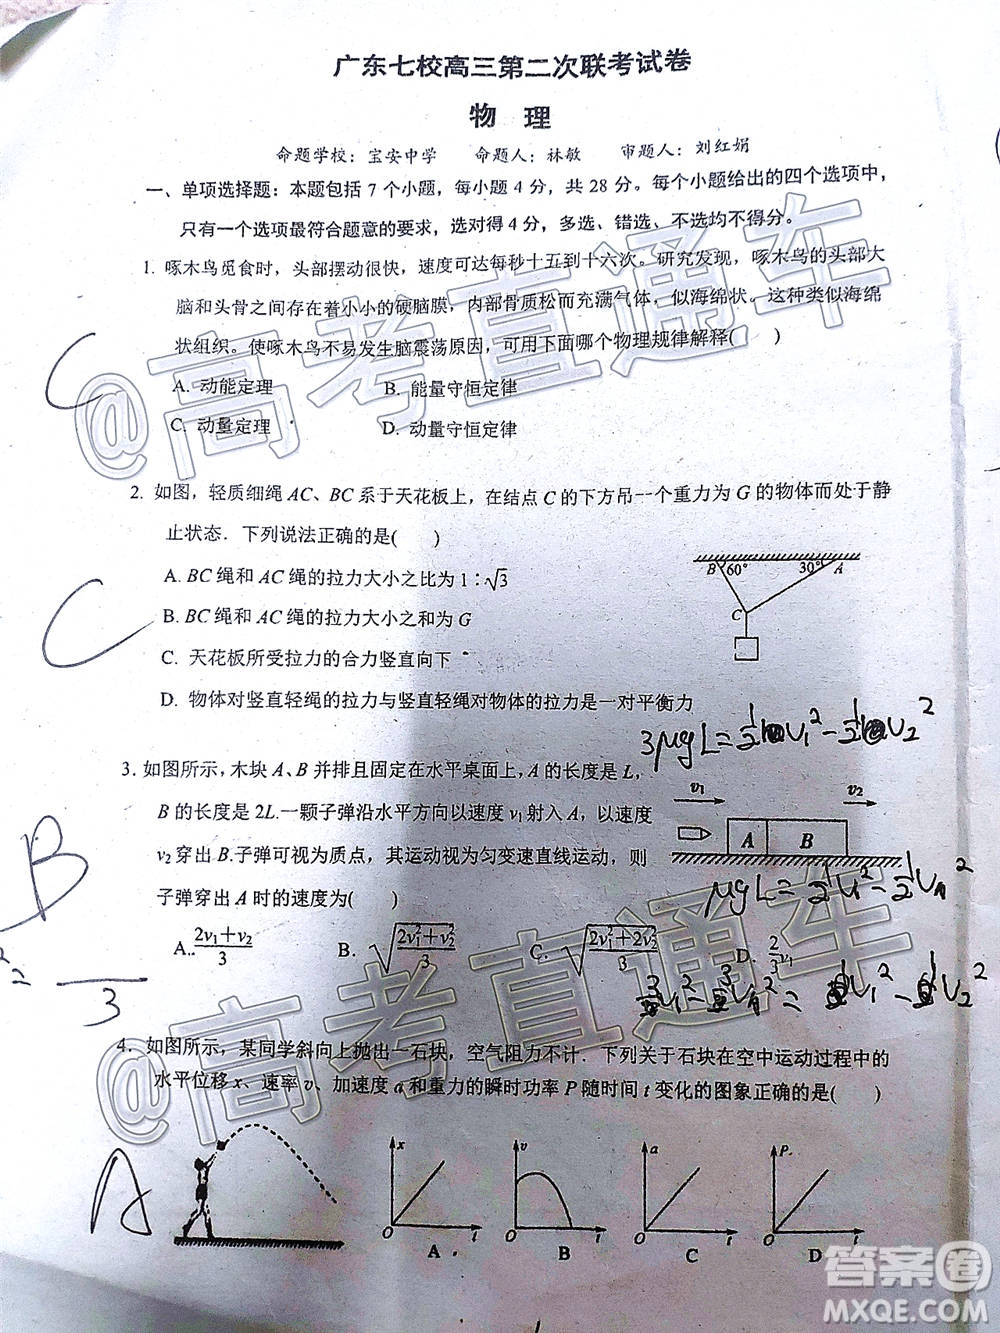 广东七校高三第二次联考试卷
物 理
命题学校：宝安中学 命题人：林敏 审题人：刘红娟
一、单项选择题：本题包括 7 个小题，每小题 4 分，共 28 分。每个小题给出的四个选项中，
只有一个选项最符合题意的要求，选对得 4 分，多选、错选、不选均不得分。
1. 啄木鸟觅食时，头部摆动很快，速度可达每秒十五到十六次。研究发现，啄木鸟的头部大
脑和头骨之间存在着小小的硬脑膜，内部骨质松而充满气体，似海绵状。这种类似海绵
状组织。使啄木鸟不易发生脑震荡原因，可用下面哪个物理规律解释( )
A. 动能定理 B. 能量守恒定律
C. 动量定理 D. 动量守恒定律
C
2. 如图，轻质细绳 AC、BC 系于天花板上，在结点 C 的下方吊一个重力为 G 的物体而处于静
止状态．下列说法正确的是( )
A. BC 绳和 AC 绳的拉力大小之比为 1∶√3
B. BC 绳和 AC 绳的拉力大小之和为 G
C. 天花板所受拉力的合力竖直向下
D. 物体对竖直轻绳的拉力与竖直轻绳对物体的拉力是一对平衡力
B 60° 30° A
C
C
3μgL=½v₁²-½v₂²
3. 如图所示，木块 A、B 并排且固定在水平桌面上，A 的长度是 L，
B 的长度是 2L.一颗子弹沿水平方向以速度 v₁射入 A，以速度
v₂穿出 B.子弹可视为质点，其运动视为匀变速直线运动，则
子弹穿出 A 时的速度为( )
A. (2v₁+v₂)/3 B. √((2v₁²+v₂²)/3) C. √((2v₁²+2v₂²)/3) D. ⅔v₁
v₁ v₂
A B
μgL=½v₁²-½vA²
3/2v₁²-3/2vA²=½v₁²-½v₂²
B
²=
3
4. 如图所示，某同学斜向上抛出一石块，空气阻力不计．下列关于石块在空中运动过程中的
水平位移 x、速率 v、加速度 a 和重力的瞬时功率 P 随时间 t 变化的图象正确的是( )
A
x v a P
O t O t O t O t
A B C D
1
@高考直通车
@高考直通车
答案圈
MXQE.COM